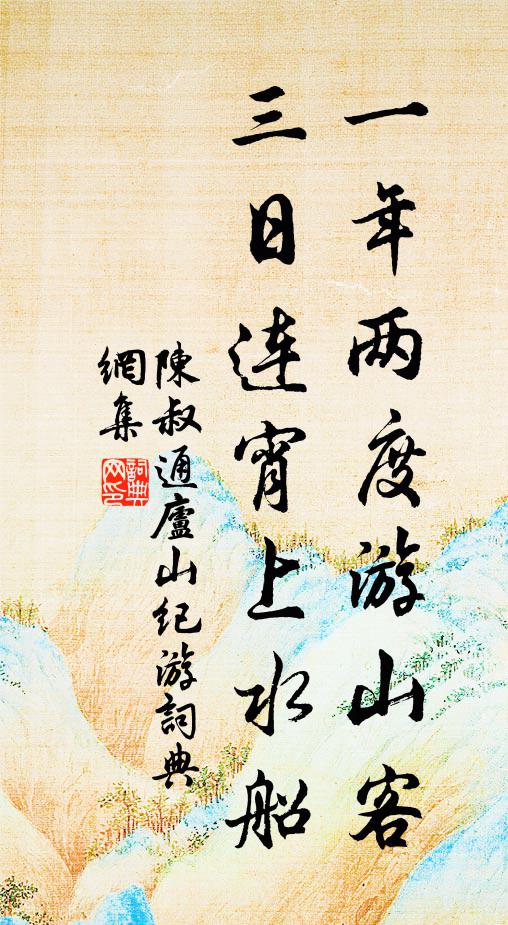 一年两度游山客
三日连宵上水船
陳叔通廬山紀游詞典
網集
詞典
网印